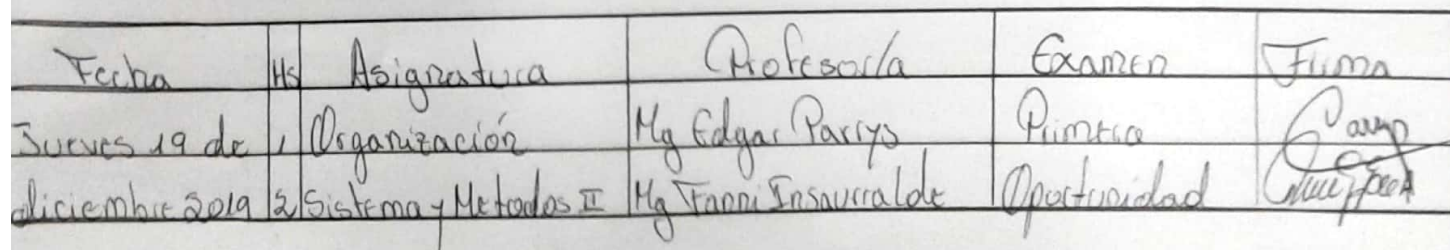 Fecha Hs Asignatura Profesor/a Examen Firma
Jueves 19 de 1 Organización Mg Edgar Parrys Primera
diciembre 2019 2 Sistema y Metodos II Mg Fanni Insaurralde Oportunidad